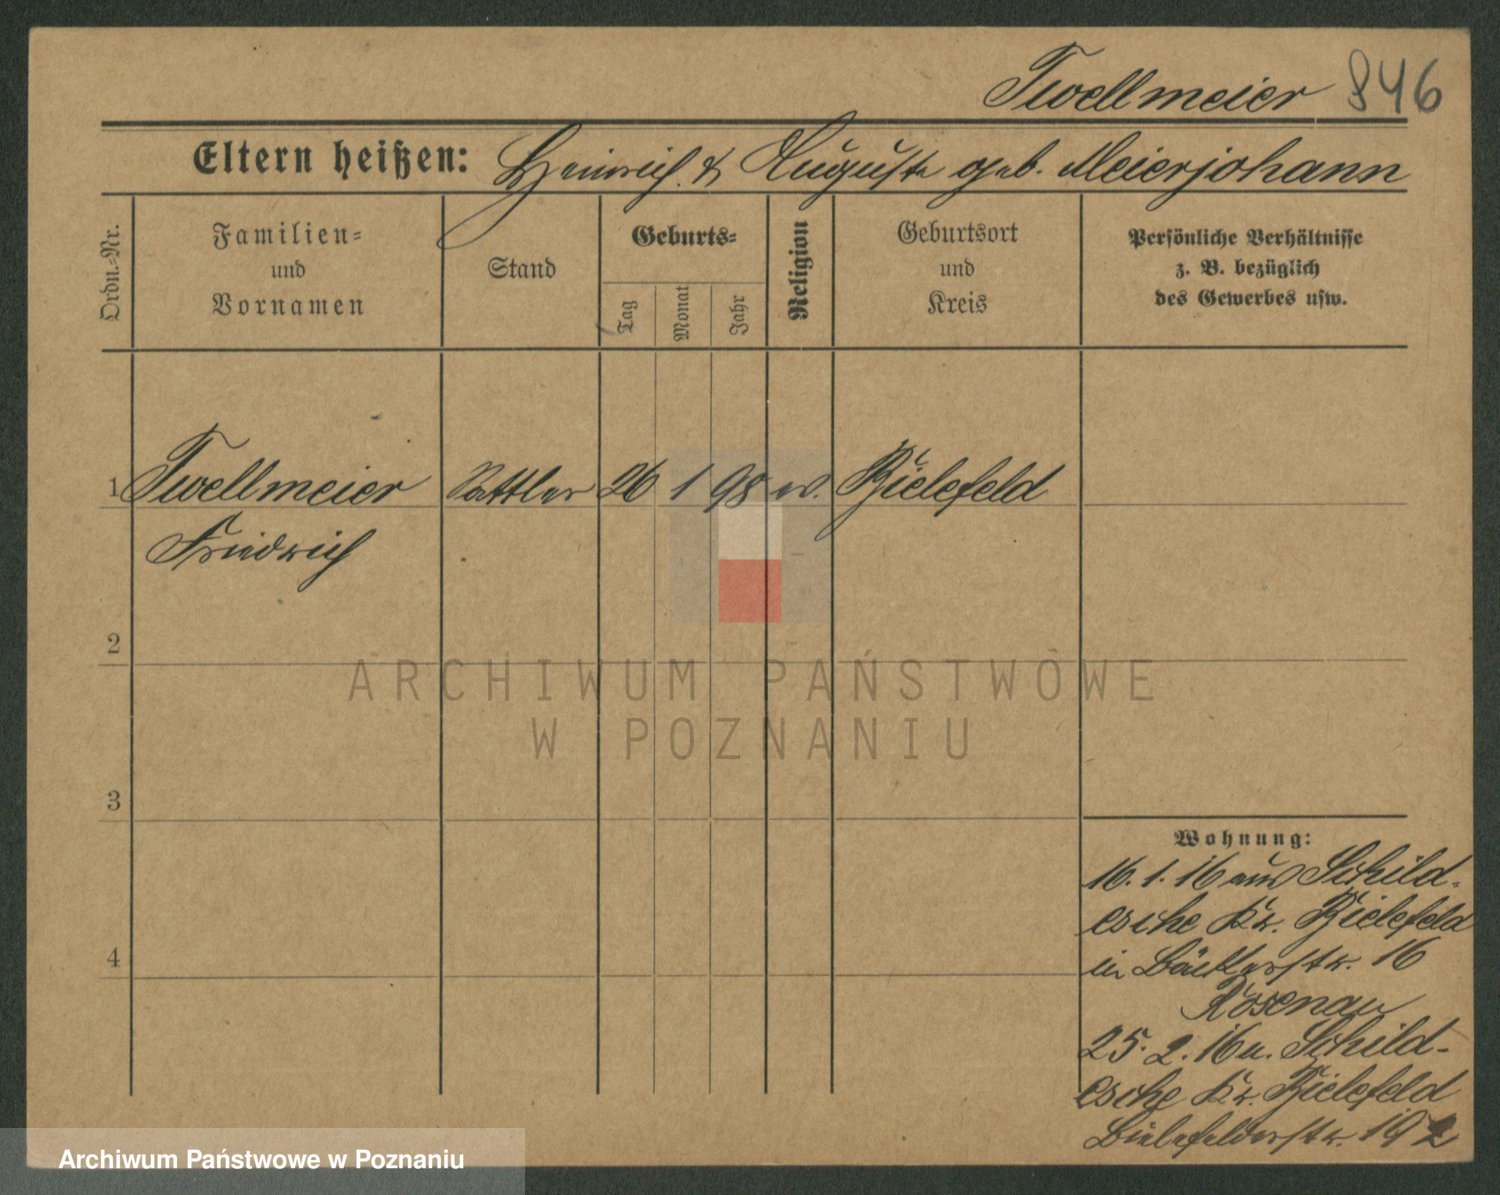 Twellmeier 846
Eltern heißen: Heinrich & Auguste geb. Meierjohann
Ordn.-Nr.
Familien-
und
Vornamen
Stand
Geburts-
Tag
Monat
Jahr
Religion
Geburtsort
und
Kreis
Persönliche Verhältnisse
z. B. bezüglich
des Gewerbes usw.
1 Twellmeier Sattler 26 1 98 ev. Bielefeld
Friedrich
2
3
4
Wohnung:
16. 1. 16 aus Schild-
esche Kr. Bielefeld
in Bäckerstr. 16
Rosenau
25. 2. 16 n. Schild-
esche Kr. Bielefeld
Bielefelderstr. 192
ARCHIWUM PAŃSTWOWE
W POZNANIU
Archiwum Państwowe w Poznaniu